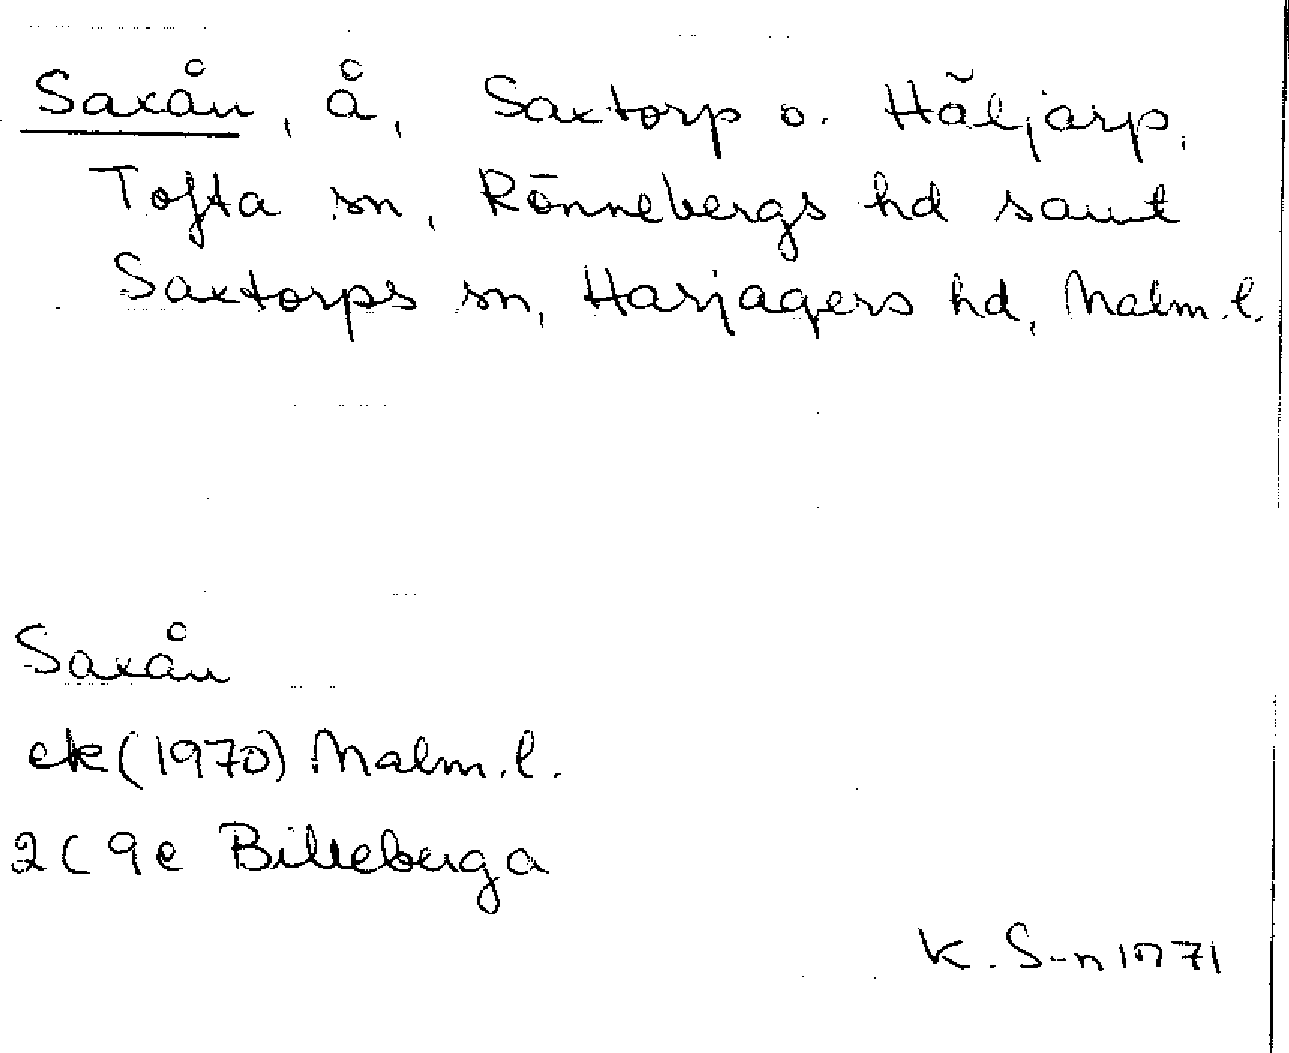 Saxån, å, Saxtorp o. Häljarp,
Tofta sn, Rönnebergs hd samt
Saxtorps sn, Harjagers hd, Malm.l.
Saxån
ek (1970) Malm.l.
2C 9e Billeberga
K. S-n 1971